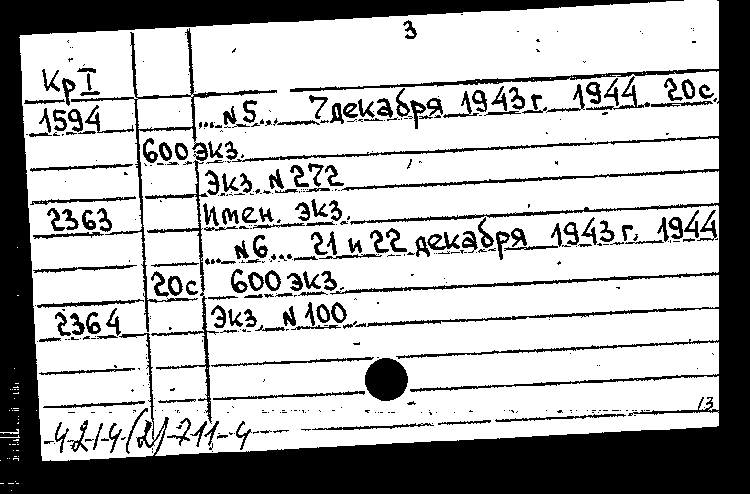 3
Кр I
1594 ... N5... 7 декабря 1943г. 1944. 20с.
600 экз.
Экз. N 272
2363 Имен. экз.
... N6... 21 и 22 декабря 1943г. 1944
20с 600 экз.
2364 Экз. N 100
13
4214(2)-711-4